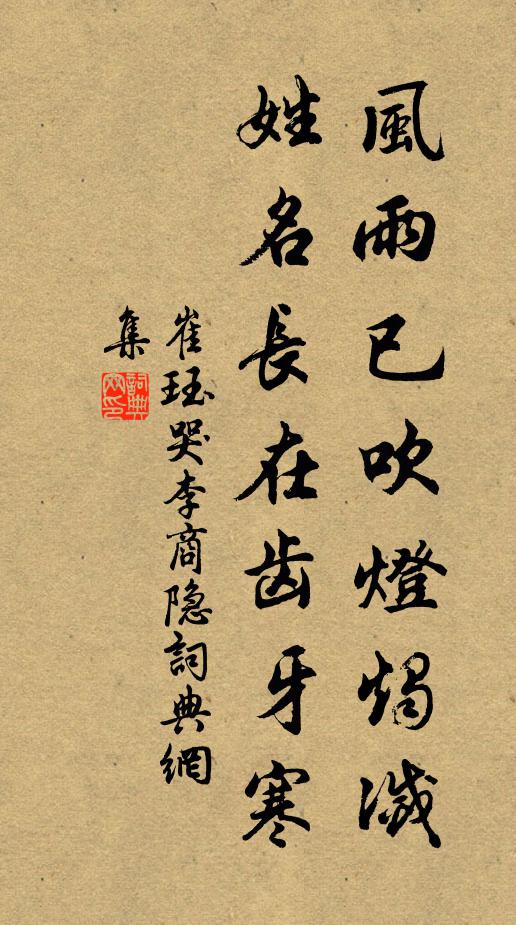 風雨已吹燈燭滅
姓名長在齿牙寒
崔珏哭李商隐詞典網
集
詞典網印